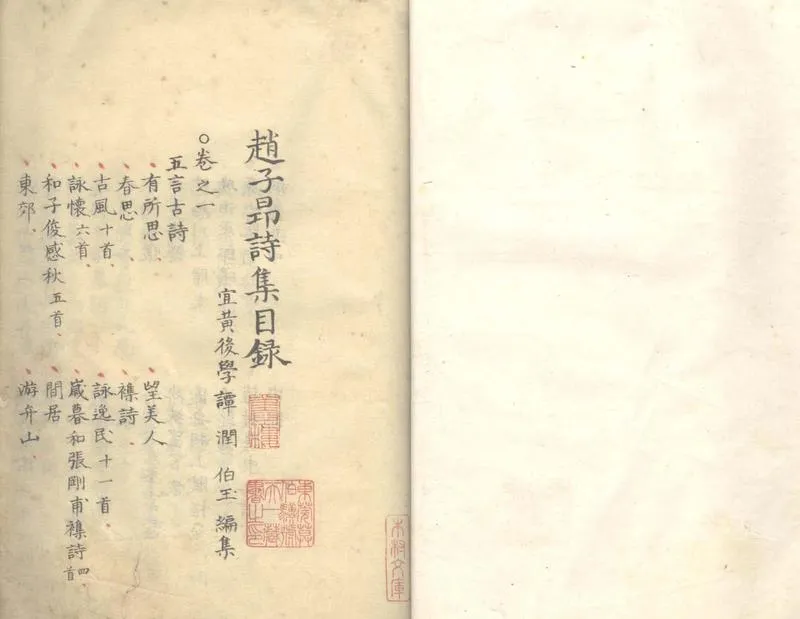 趙子昂詩集目録
宜黃後學譚潤伯玉編集
○卷之一
五言古詩
有所思 望美人
春思、 襍詩、
古風十首、 詠逸民十一首、
詠懷六首、 歲暮和張剛甫襍詩四首
和子俊感秋五首、 間居
東郊、 游弁山、
木村文庫